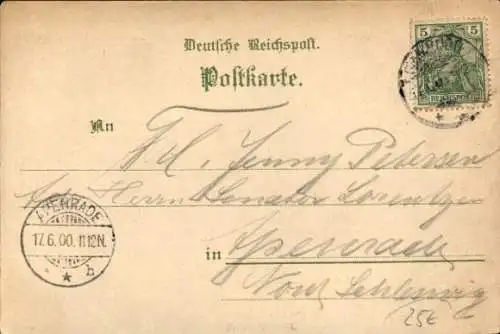 Deutsche Reichspost.
Postkarte.
5 5
REICHSPOST
An
Frl. Jenny Petersen
bei Herrn Senator Lorentzen
APENRADE
17.6.00. 11-12N.
* b
in Apenrade
Nord Schleswig
25€